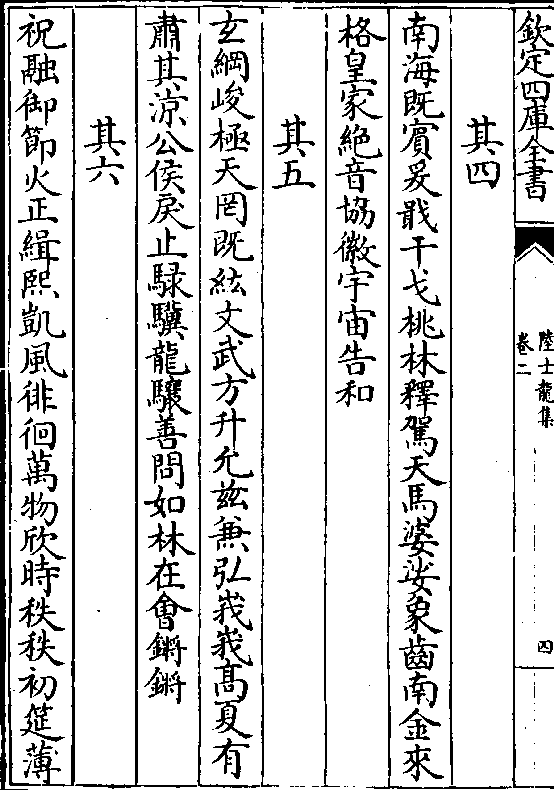 欽定四庫全書
陸士龍集
卷二
四
其四
南海既賓爰戢干戈桃林釋駕天馬婆娑象齒南金來
格皇家絶音協徽宇宙告和
其五
玄綱峻極天罔既紘文武方升允兹兼弘峩峩髙夏有
肅其涼公侯戾止騄驥龍驤善問如林在會鏘鏘
其六
祝融御節火正緝熙凱風徘徊萬物欣時秩秩初筵薄